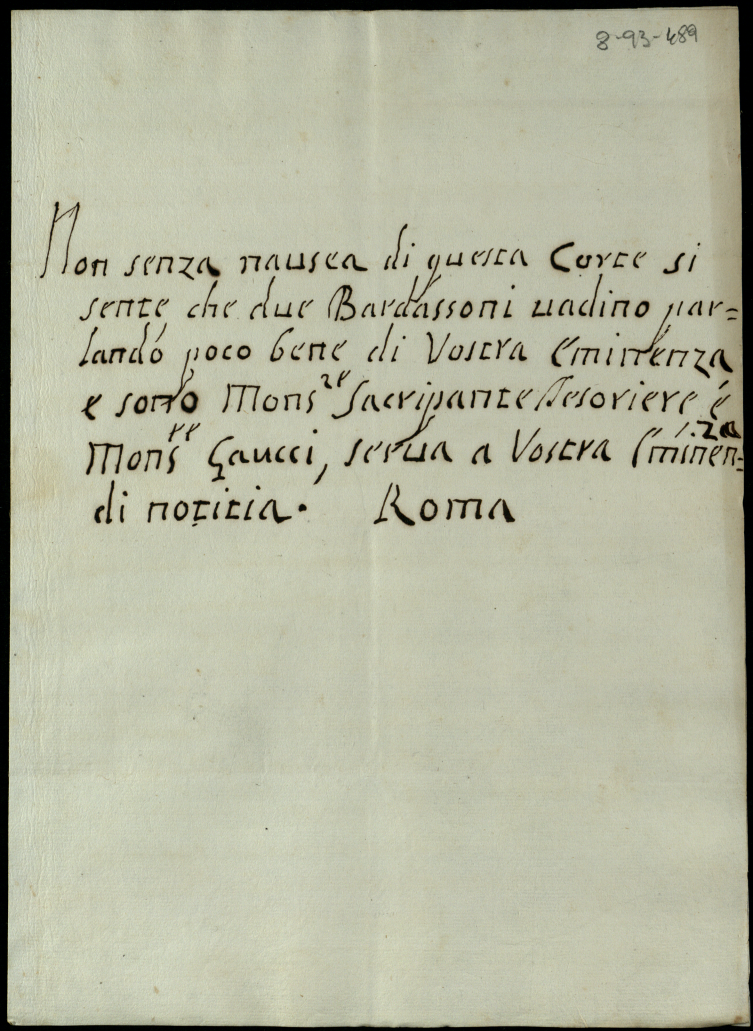 8-93-489
Non senza nausea di questa Corte si
sente che due Bardassoni uadino par=
lando poco bene di Vostra Eminenza
e sono Mons.re Sacripante Tesoriere é
Mons.re Gaucci, serua a Vostra Eminen=za
di notitia. Roma